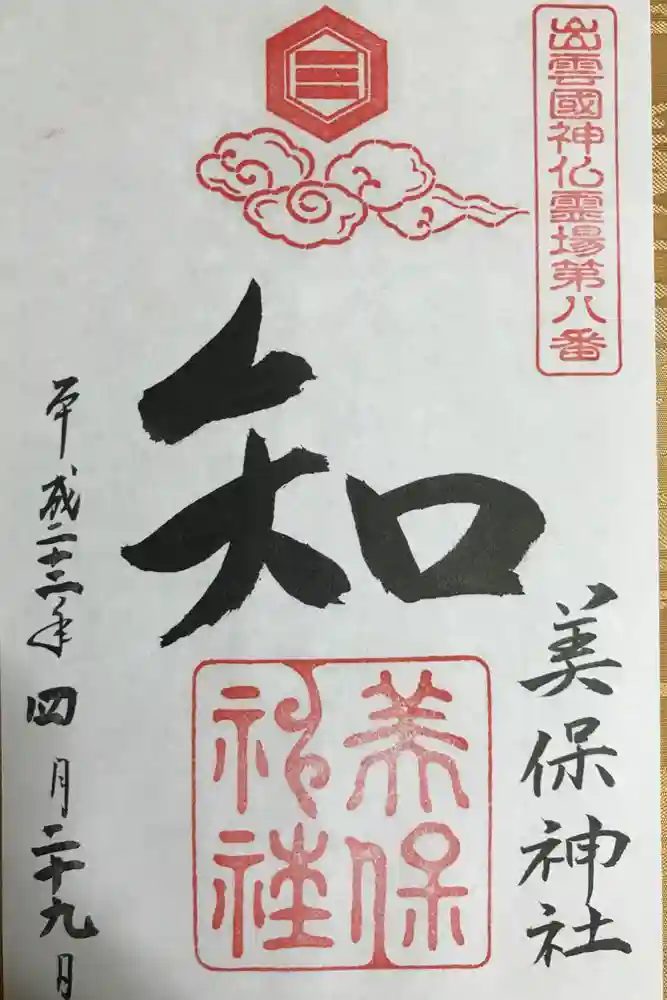 出雲國神仏霊場第八番
知
美保神社
美保
神社
平成二十三年四月二十九日